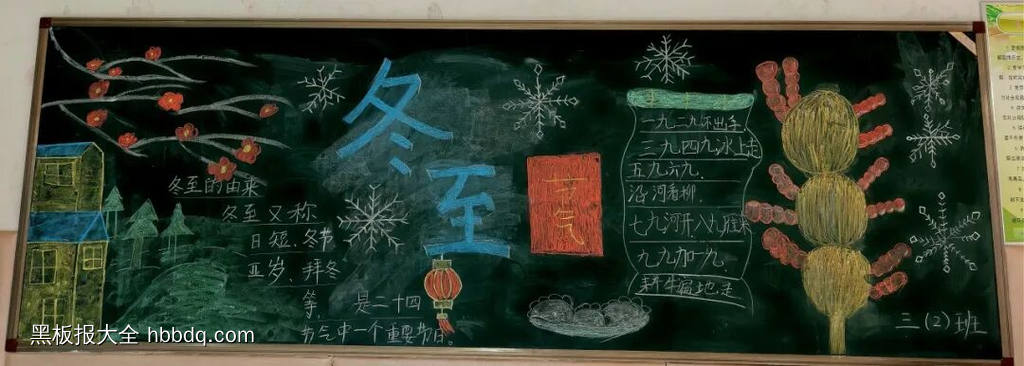 冬至
节气
冬至的由来
冬至又称
日短、冬节
亚岁、拜冬
等 是二十四
节气中一个重要节日。
一九二九不出手
三九四九冰上走
五九六九,
沿河看柳
七九河开八九雁来
九九加一九,
耕牛遍地走
三(2)班
黑板报大全 hbbdq.com